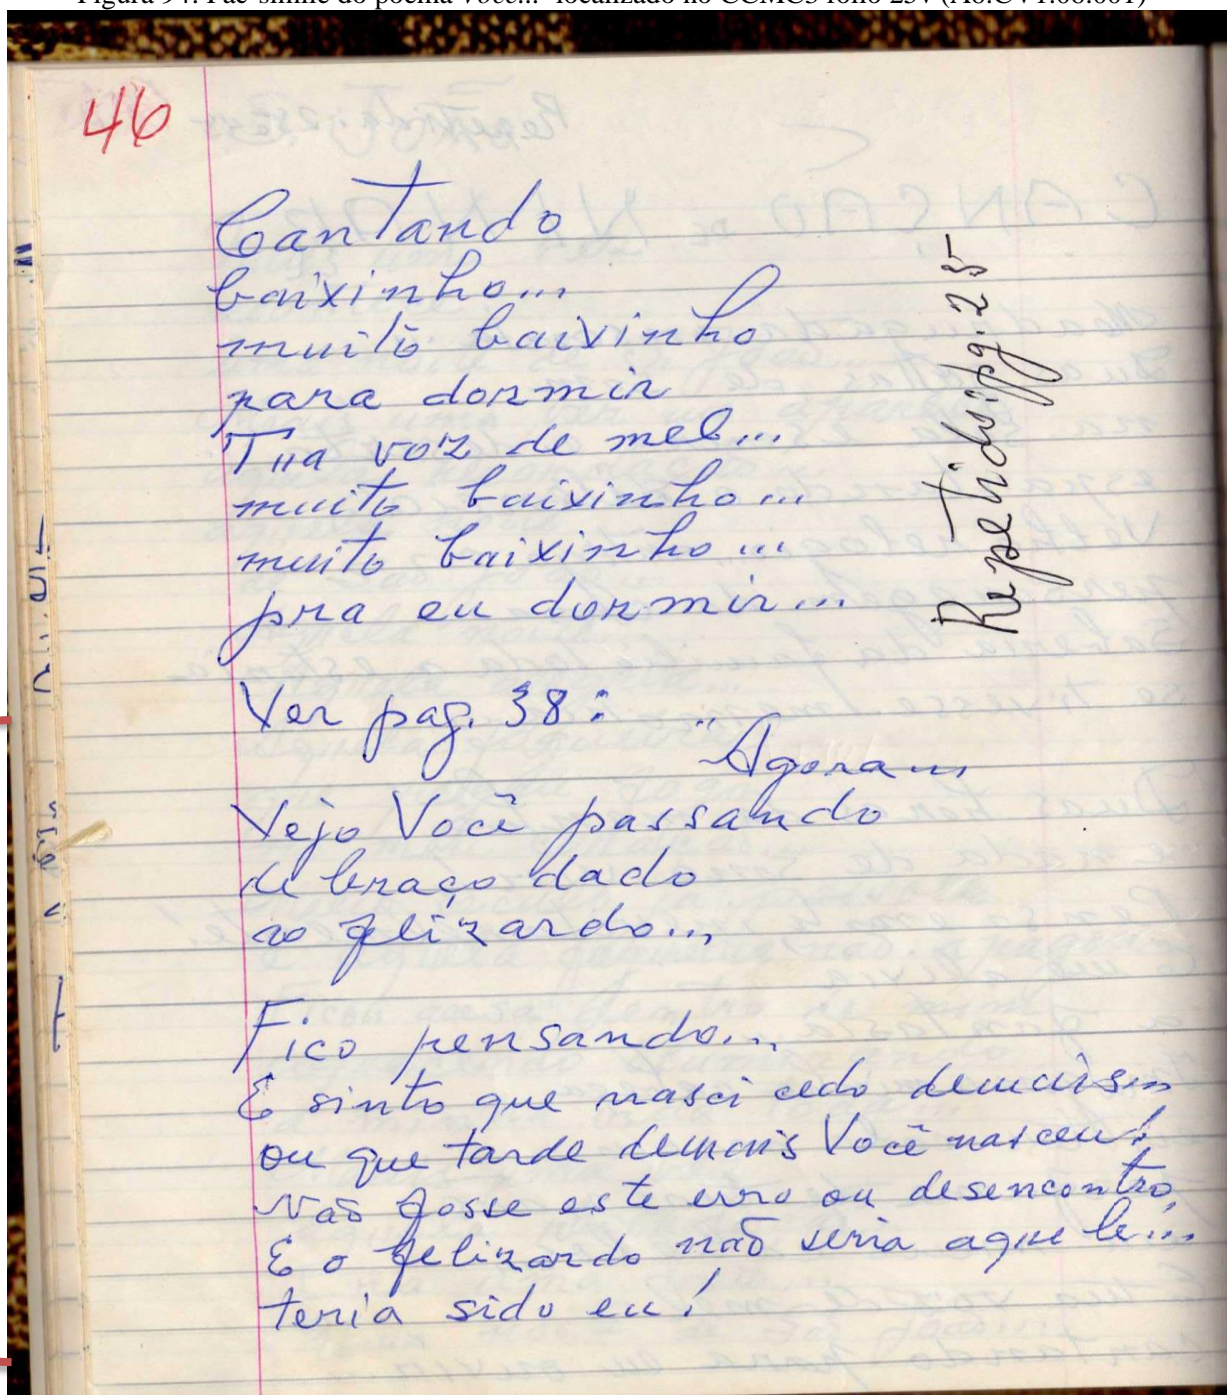 46
Cantando
baixinho...
muito baixinho
para dormir
Tua voz de mel...
muito baixinho...
muito baixinho...
pra eu dormir...
Repetido: pg. 25
Ver pag. 38:
"Agora...
Vejo Você passando
de braço dado
ao felizardo...
Fico pensando...
E sinto que nasci cedo demais...
ou que tarde demais Você nasceu!
Não fosse este erro ou desencontro
E o felizardo não seria aquele...
teria sido eu!